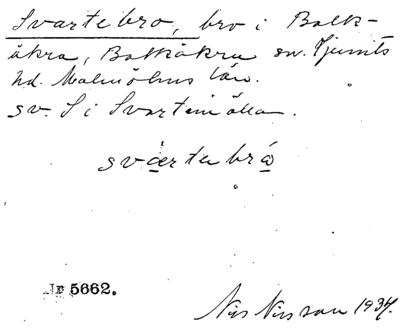 Svartebro, bro i Balk-
åkra, Balkåkra sn. Ljunits
hd. Malmöhus län.
sv. S i Svartemölla.
svartabrå
Nr 5662.
Nils Nilsson 1934.